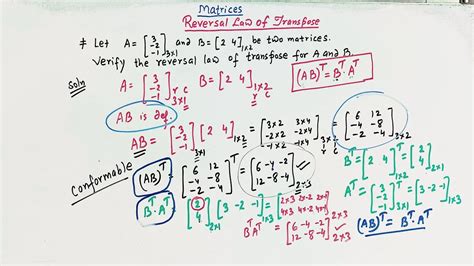 Matrices
Reversal Law of Transpose
# Let A = [3 -2 -1]3×1 and B = [2 4]1×2 be two matrices.
Verify the reversal law of transpose for A and B.
Soln
A = [3 -2 -1]3×1 r c B = [2 4]1×2 r c
(AB)^T = B^T·A^T
AB is def.
AB = [3 -2 -1]3×1 [2 4]1×2 = [3×2 3×4 -2×2 -2×4 -1×2 -1×4] = [6 12 -4 -8 -2 -4]3×2
Conformable
(AB)^T = [6 12 -4 -8 -2 -4]^T = [6 -4 -2 12 -8 -4]2×3 ✓
B^T = [2 4]^T = [2 4]2×1
A^T = [3 -2 -1]^T = [3 -2 -1]1×3
B^T·A^T = [2 4]2×1 [3 -2 -1]1×3 = [2×3 2×-2 2×-1 4×3 4×-2 4×-1]2×3
B^T A^T = [6 -4 -2 12 -8 -4]2×3 ✓
(AB)^T = B^T·A^T